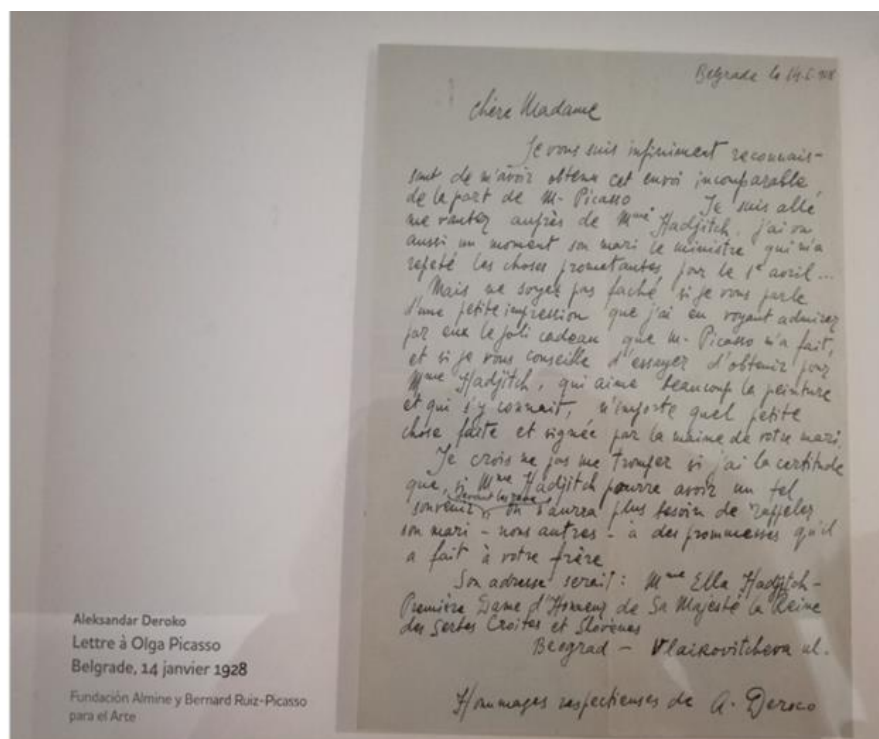 Belgrade le 14.I.928
Chère Madame
Je vous suis infiniment reconnais-
sant de m'avoir obtenu cet envoi incomparable
de la part de M. Picasso Je suis allé
me vanter auprès de Mme Hadjitch, j'ai vu
aussi un moment son mari le ministre qui m'a
repeté les choses prometantes pour le 1e avril...
Mais ne soyez pas faché si je vous parle
d'une petite impression que j'ai eu voyant admirer
par eux le joli cadeau que M. Picasso m'a fait,
et si je vous conseille d'essayer d'obtenir pour
Mme Hadjitch, qui aime beaucoup la peinture
et qui s'y connait, n'importe quel petite
chose faite et signée par la maine de votre mari.
Je crois ne pas me tromper si j'ai la certitude
que, si Mme Hadjitch pourre avoir un tel
souvenir, on n'aurra plus besoin de rappeler
son mari - nous autres - à des prommesses qu'il
a fait à votre frère
Son adresse serait : Mme Ella Hadjitch -
Première Dame d'Honneur de Sa Majesté la Reine
des Serbes Croites et Slovènes
Beograd - Vlaikovitcheva ul.
Hommages respectieuses de A. Deroco
Aleksandar Deroko
Lettre à Olga Picasso
Belgrade, 14 janvier 1928
Fundación Almine y Bernard Ruiz-Picasso
para el Arte